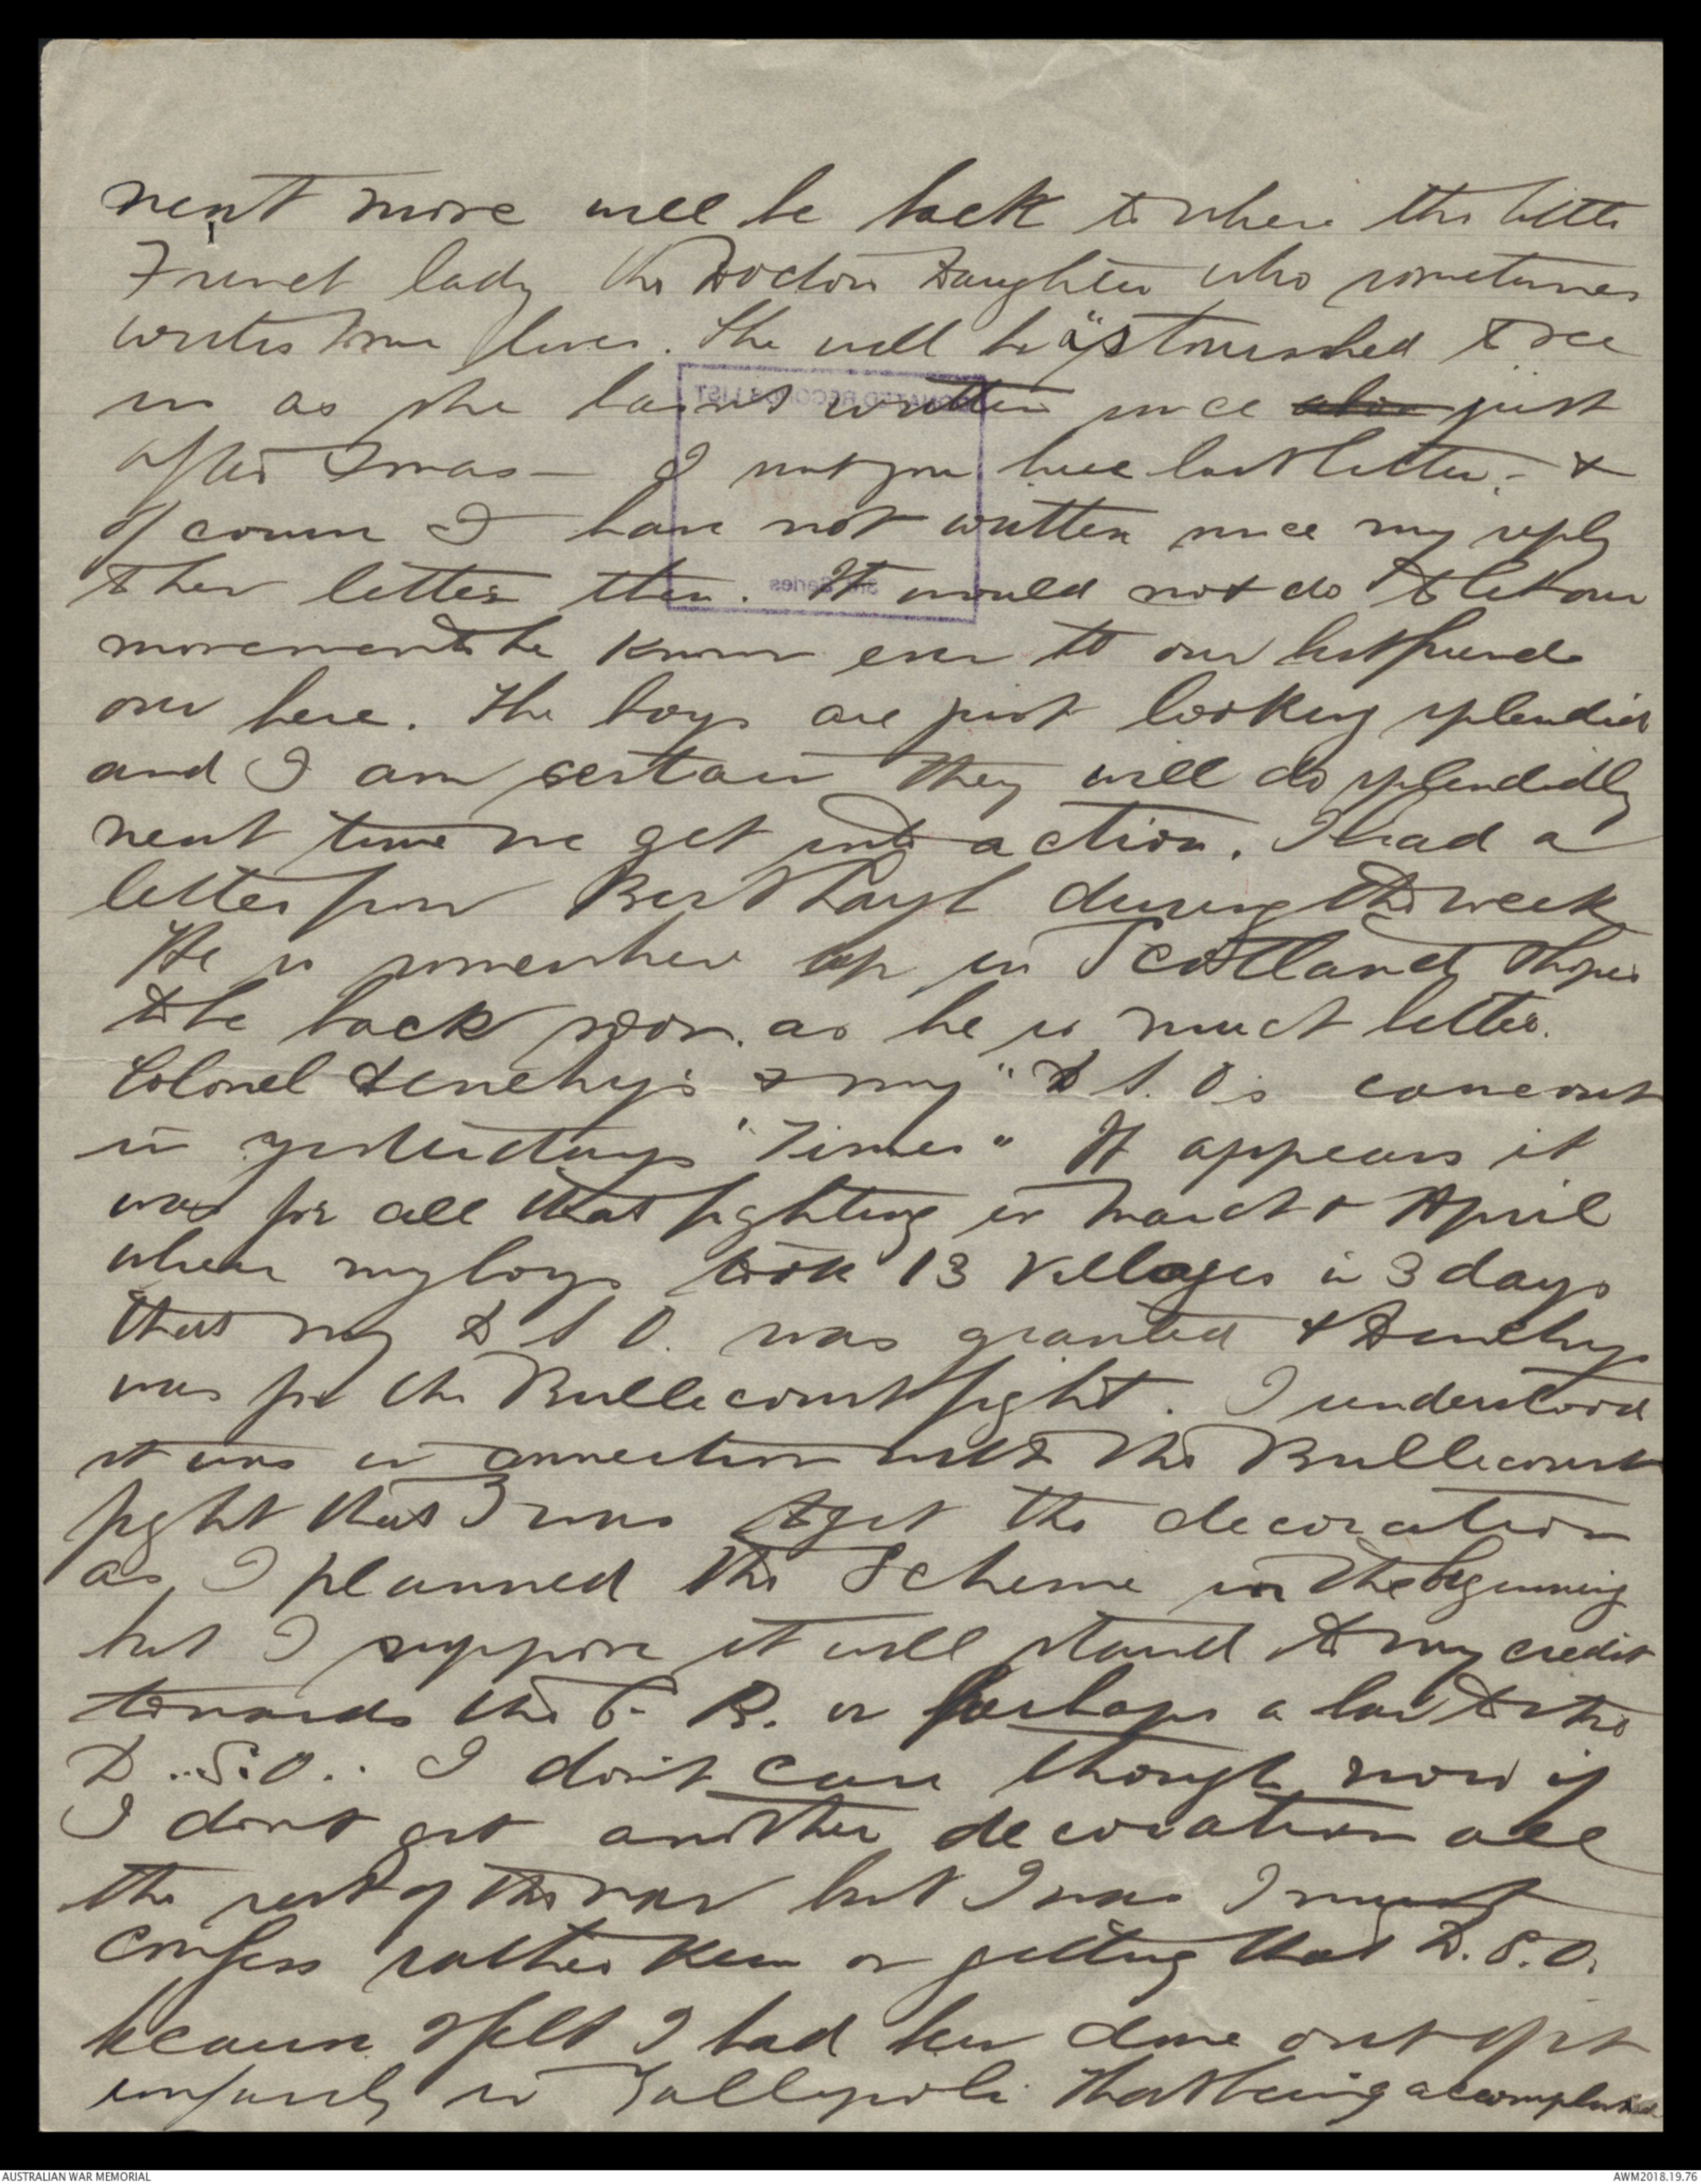 next move will be back to where the little
French lady the Doctors Daughter who sometimes
writes to me lives. She will be "astonished to see
us as she hasnt written since just
after Xmas - I sent you her last letter - &
of course I have not written since my reply
to her letter then. It would not do to let our
movements be known even to our best friends
over here. The boys are just looking splendid
and I am certain they will do splendidly
next time we get into action. I had a
letter from Bert during the week
He is somewhere up in Scotland & hopes
to be back soon. as he is much better.
Colonel Denehy's & my "D S. O's came out
in yesterdays "Times" It appears it
was for all that fighting in March & April
when my boys took 13 Villages in 3 days
that my D S O. was granted & Denehys
was for the Bullecourt fight. I understood
it was in connection with the Bullecourt
fight that I was to get the decoration
as I planned the Scheme in the beginning
but I suppose it will stand to my credit
towards the C. B. or perhaps a bar to the
D..S.O.. I don't care though now if
I dont get another decoration all
the rest of the war but I was I must
confess rather keen on getting that D.S.O.
because I felt I had been done out of it
unfairly in Gallipoli. That being accomplished
AUSTRALIAN WAR MEMORIAL
AWM2018.19.76